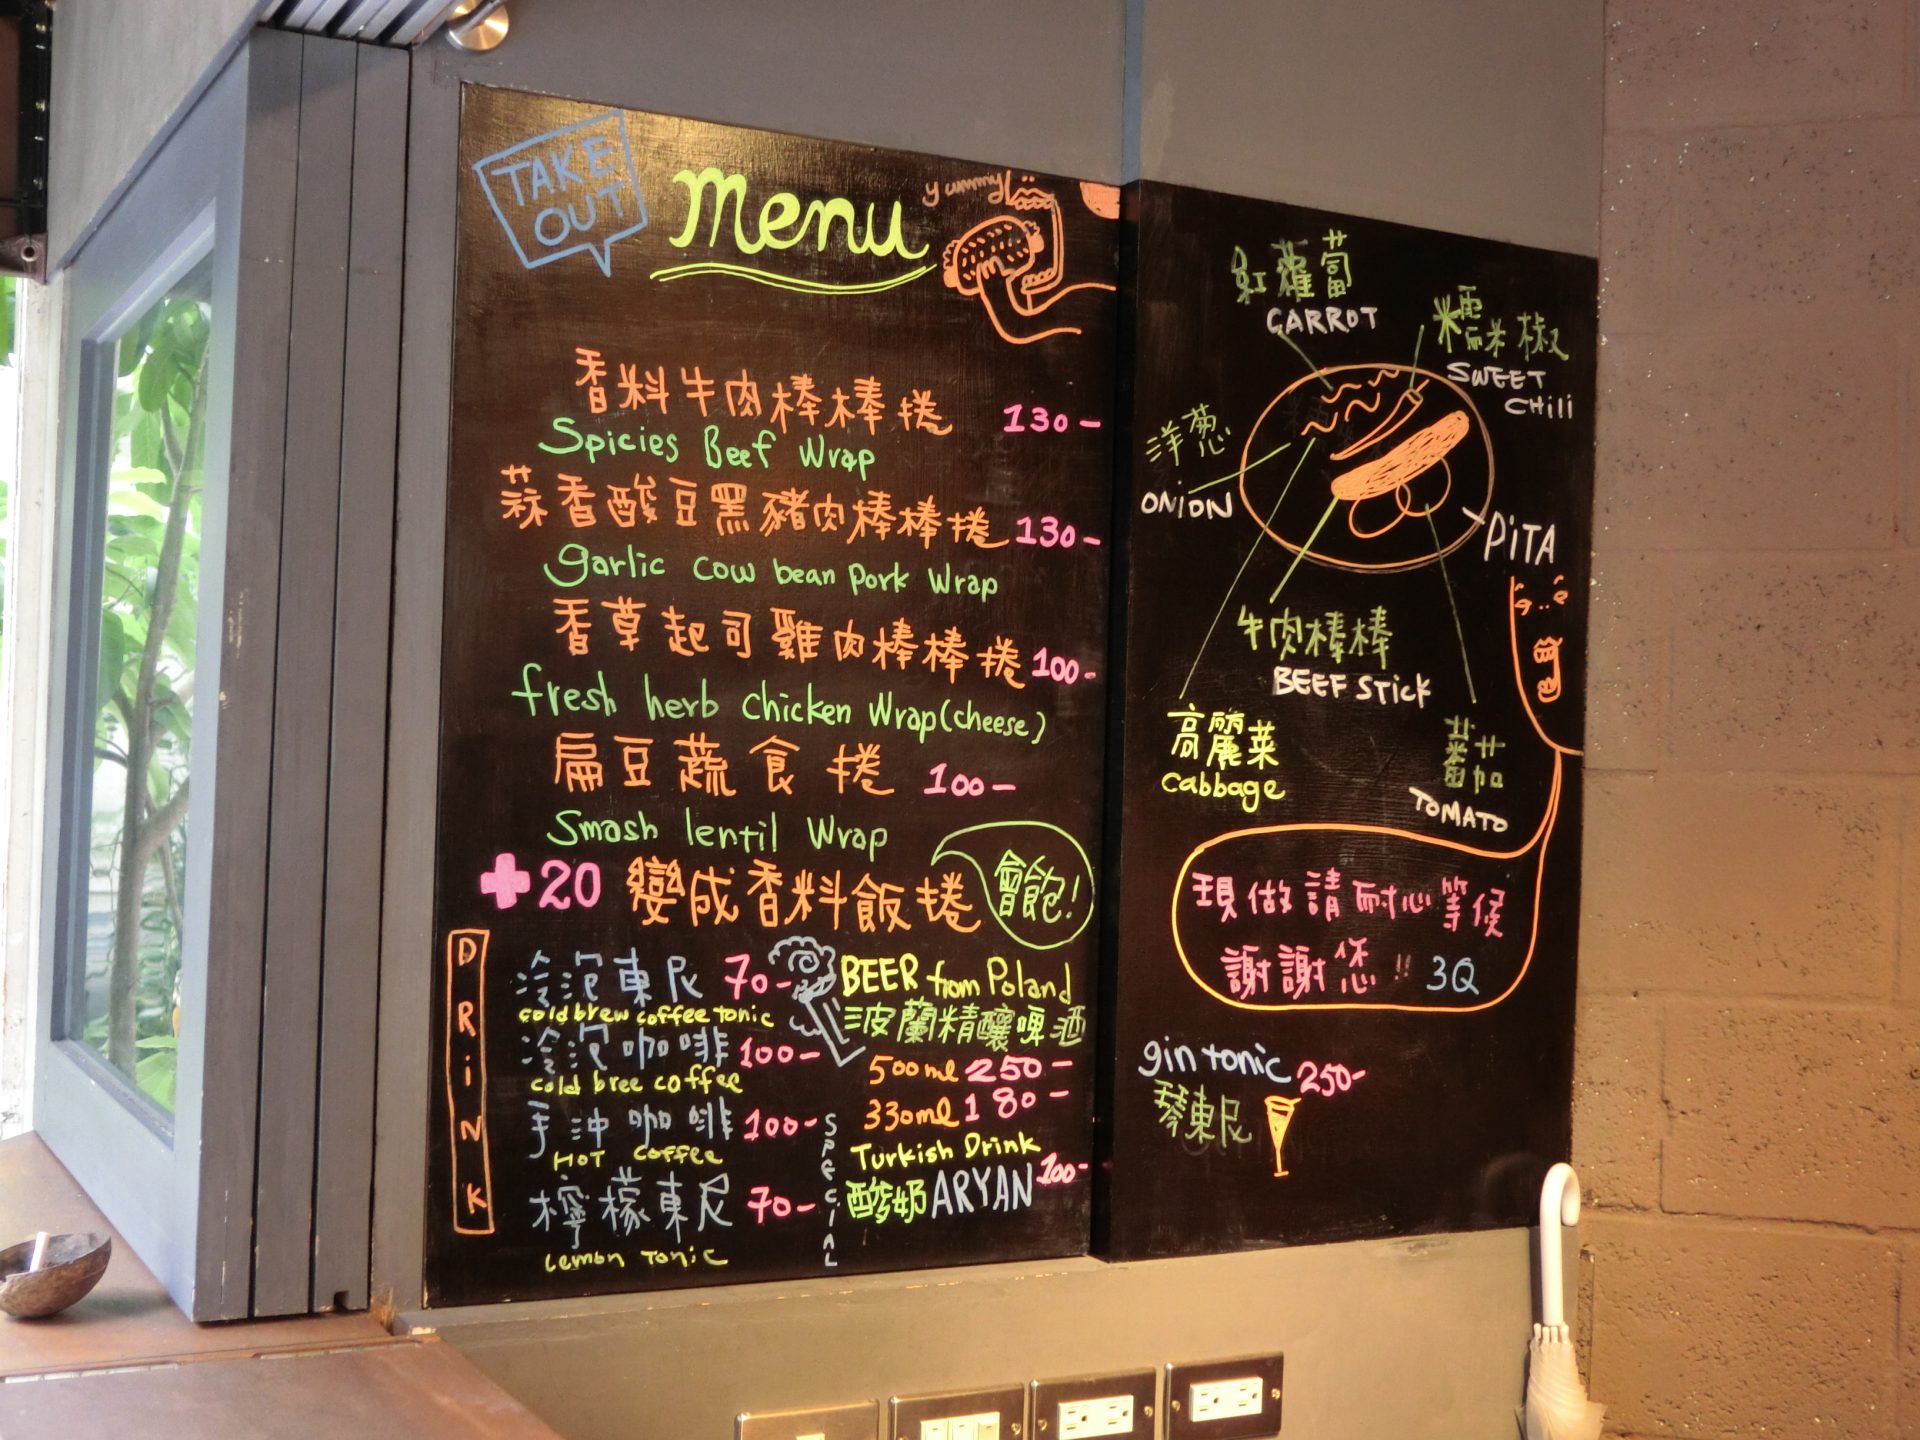 TAKE OUT
menu
yummy
香料牛肉棒棒捲 130-
Spicies Beef Wrap
蒜香酸豆黑豬肉棒棒捲 130-
garlic cow bean pork wrap
香草起司雞肉棒棒捲 100-
fresh herb chicken Wrap (cheese)
扁豆蔬食捲 100-
Smash lentil Wrap
+20 變成香料飯捲
會飽!
DRiNK
冷泡東尼 70-
cold brew coffee tonic
冷泡咖啡 100-
cold bree coffee
手沖咖啡 100-
HOT coffee
檸檬東尼 70-
Lemon Tonic
SPECIAL
BEER from Poland
波蘭精釀啤酒
500ml 250-
330ml 180-
Turkish Drink
酸奶 ARYAN 100-
紅蘿蔔
CARROT
糯米椒
SWEET CHili
洋蔥
ONiON
PiTA
牛肉棒棒
BEEF STicK
高麗菜
cabbage
蕃茄
TOMATO
現做請耐心等候
謝謝您!! 3Q
gin tonic 250-
琴東尼